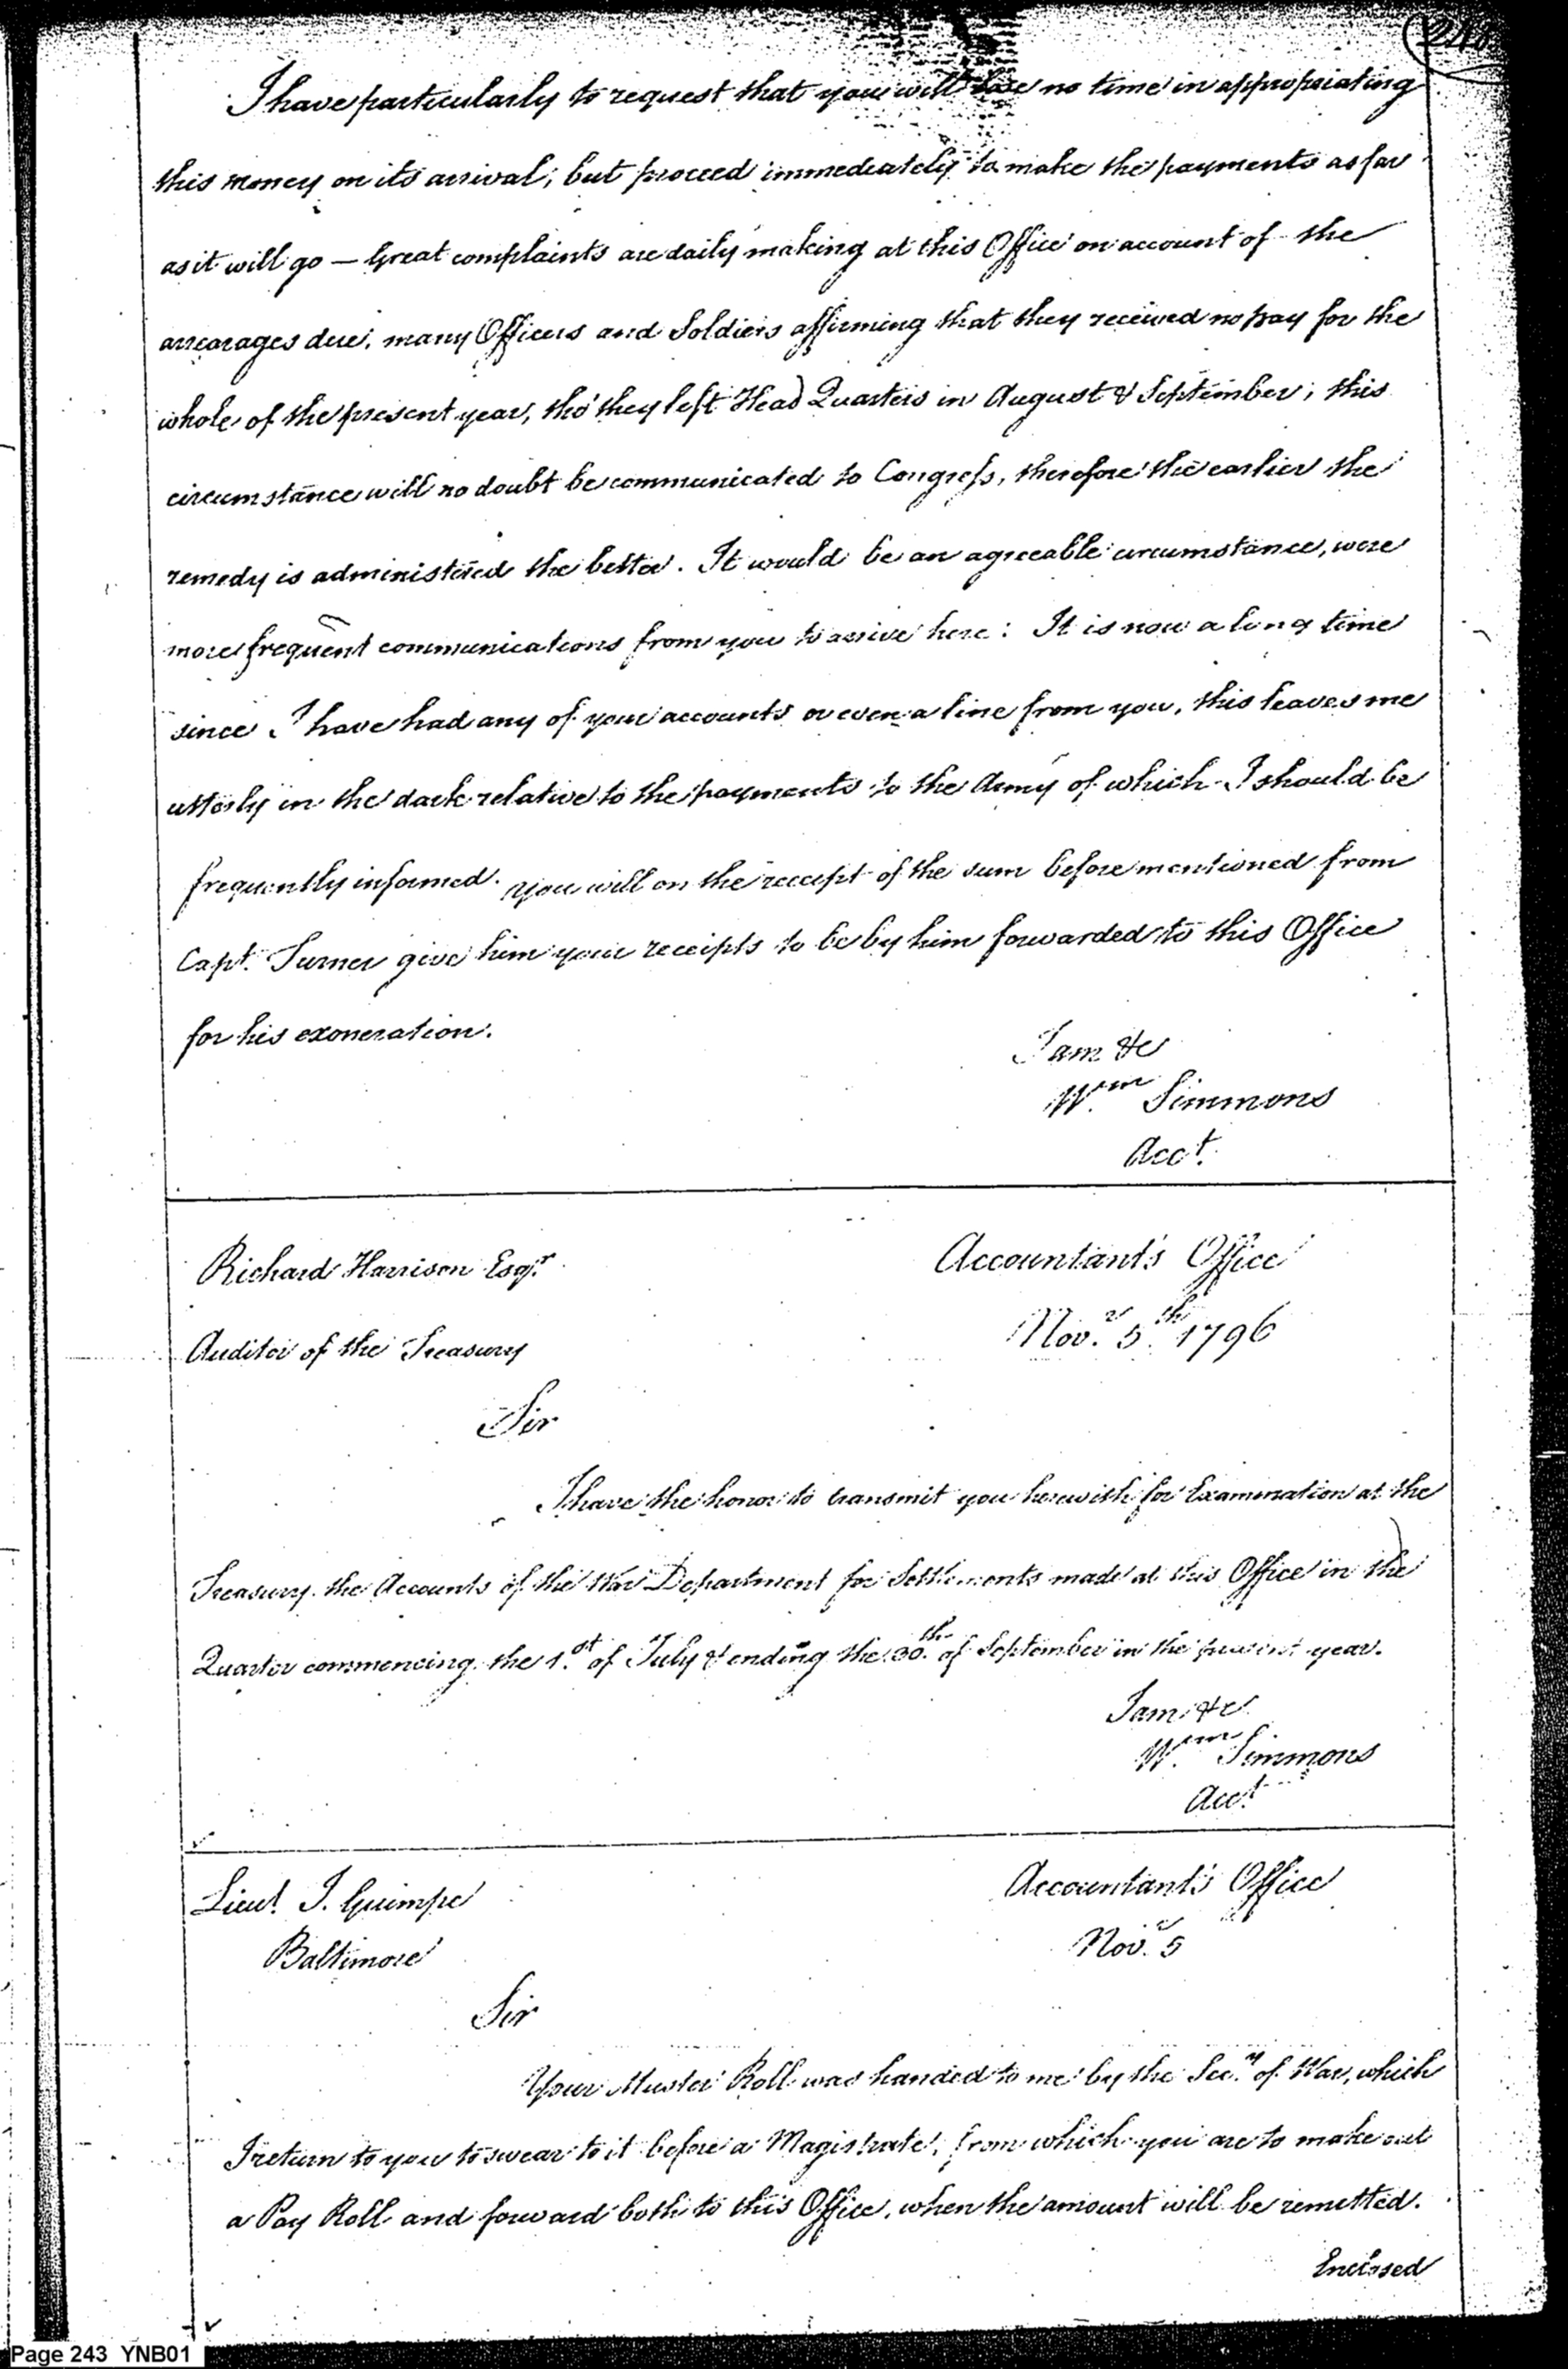 I have particularly to request that you will lose no time in appropriating
this money on its arrival, but proceed immediately to make the payments as far
as it will go — Great complaints are daily making at this Office on account of the
arrearages due, many Officers and Soldiers affirming that they received no pay for the
whole of the present year, tho' they left Head Quarters in August & September; this
circumstance will no doubt be communicated to Congress, therefore the earlier the
remedy is administered the better. It would be an agreeable circumstance, were
more frequent communications from you to arrive here: It is now a long time
since I have had any of your accounts or even a line from you, this leaves me
utterly in the dark relative to the payments to the Army of which I should be
frequently informed. You will on the receipt of the sum before mentioned from
Capt. Turner give him your receipts to be by him forwarded to this Office
for his exoneration.
I am &c
Wm Simmons
Acct.
Richard Harrison Esqr.
Accountant's Office
Novr. 5th. 1796
Auditor of the Treasury
Sir
I have the honor to transmit you herewith for Examination at the
Treasury the Accounts of the War Department for Settlements made at this Office in the
Quarter commencing the 1.st of July & ending the 30.th of September in the present year.
I am &c
Wm Simmons
Acct
Lieut. J. Guimpe
Accountant's Office
Baltimore
Novr. 5
Sir
Your Muster Roll was handed to me by the Secy. of War, which
I return to you to swear to it before a Magistrate, from which you are to make out
a Pay Roll and forward both to this Office, when the amount will be remitted.
Enclosed
Page 243 YNB01